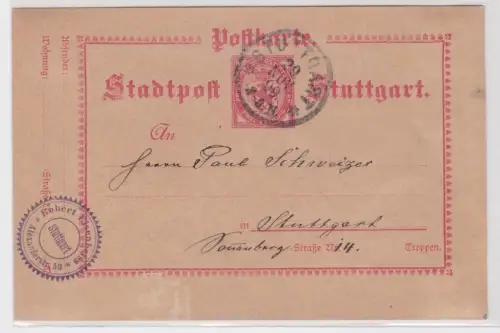 Postkarte.
STUTTGART
Stadtpost Stuttgart.
An
Herrn Paul Schweizer
in Stuttgart
Sonnenberg Straße No 14. Treppen.
Absender:
Wohnung:
Straße
Robert
Stuttgart
Alexanderstr. 50